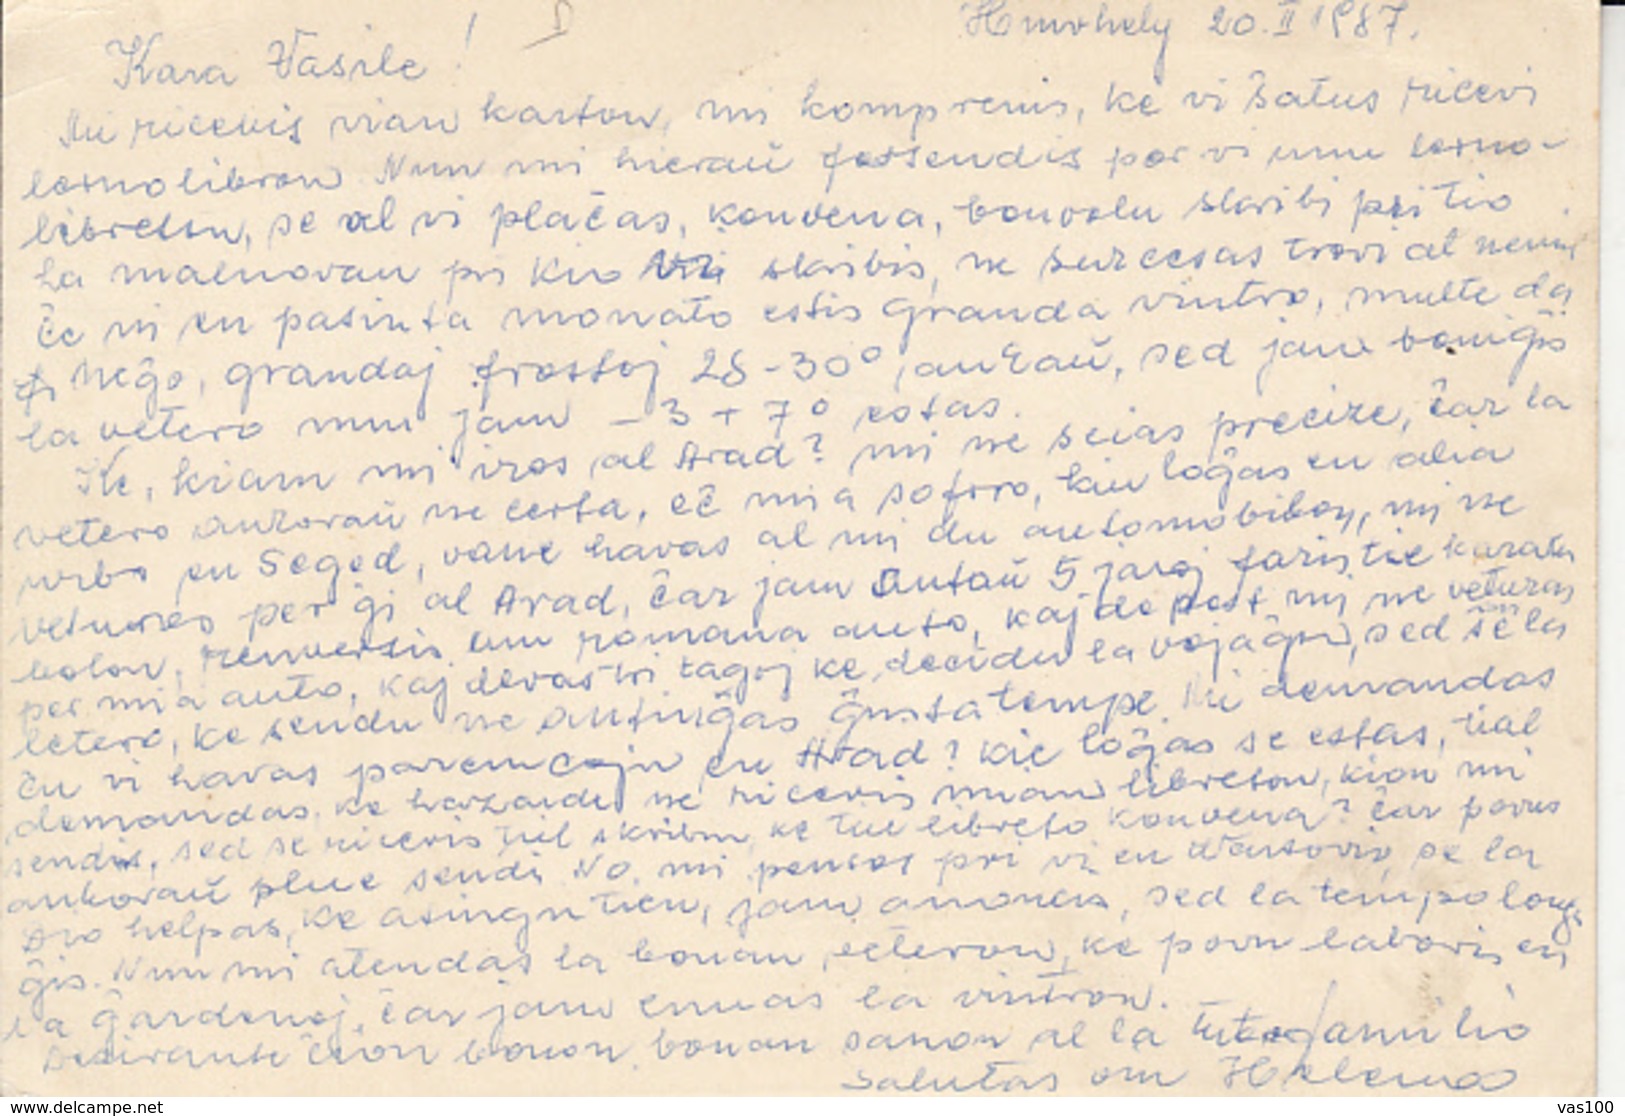 Hmvhely 20.II 1987.
Kara Vasile!
Mi ricevis vian karton, mi komprenis, ke vi ŝatus ricevi
lernolibron. Nun mi hieraŭ forsendis por vi unu lerno-
libreton, se al vi plaĉas, konvena, bonvolu skribi pri tio
La malnovan pri kio vi skribis, ne sukcesas trovi al neniu
ĉe ni en pasinta monato estis granda vintro, multe da
neĝo, grandaj frostoj 28-30°, ankaŭ, sed jam boniĝis
la vetero nun jam - 3 + 7° estas.
Ke, kiam mi iros al Arad? mi ne scias precize, ĉar la
vetero ankoraŭ ne certa, eĉ mia ŝoforo, kiu loĝas en alia
urbo en Seged, vane havas al mi du automobiloy, mi ne
veturos per ĝi al Arad, ĉar jam antaŭ 5 jaroj faris tie
renversis unu romana auto, kaj de post mi ne veturas
per mia auto, kaj devas tri tagoj ke decidu la vojaĝon, sed se la
letero, ke sendu ne antinĝas ĝusta tempe. Mi demandas
ĉu vi havas parencojn en Arad? kie loĝas se estas, tial
demandas ke hazarde ne ricevis mian libreton, kion mi
sendis, sed se ricevis tiel skribu, ke tiu libreto konvena? ĉar povus
ankoraŭ plue sendi. No, mi pensas pri vi en se la
Dio helpas, ke atingu tien, jam, sed la tempo long
ĝis. Nun mi atendas la bonan veteron, ke povu labori en
la ĝardenoj, ĉar jam enuas la vintron.
Dezirante ĉion bonon, bonan sanon al la tuta familio
salutas vin Helena
www.delcampe.net
vas100